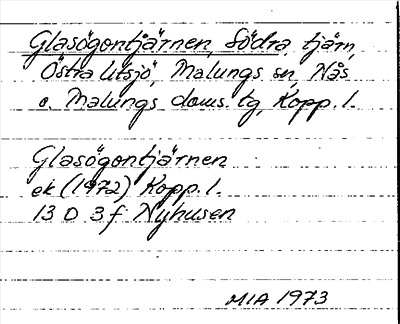 Glasögontjärnen, Södra, tjärn,
Östra Utsjö, Malungs sn, Nås
o. Malungs doms. tg, Kopp. l.
Glasögontjärnen
ek (1972) Kopp. l.
13 D 3f Nyhusen
MIA 1973